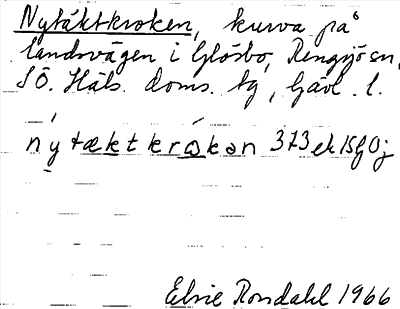 Nytäktkroken, kurva på
landsvägen i Glösbo, Rengsjö sn,
SÖ. Häls. doms. tg, Gävl. l.
nytæktkrɷkən 373 ek
Elsie Rondahl 1966